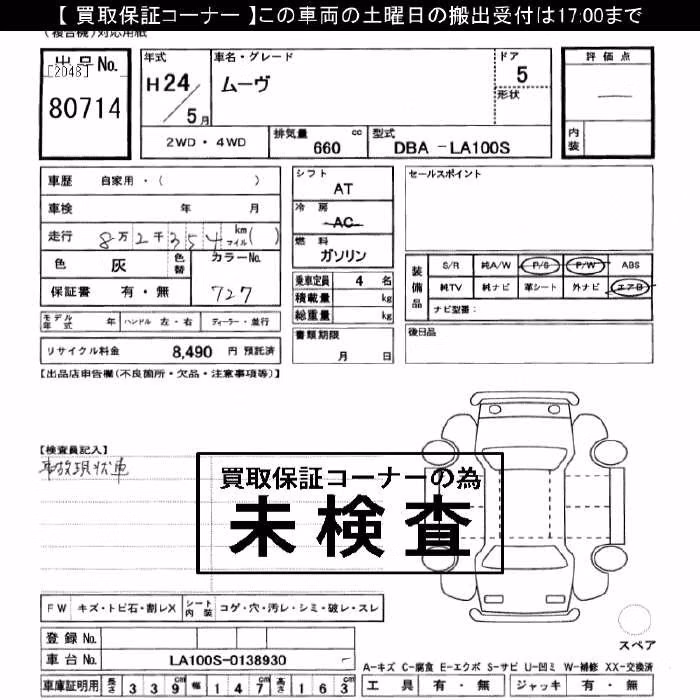 【 買取保証コーナー 】この車両の土曜日の搬出受付は17:00まで
(複合機)対応用紙
出品No.
[2048]
80714
年式 H24/5月
車名・グレード ムーヴ
ドア 5
形状
評価点
—
内装
2WD・4WD
排気量 660 cc
型式 DBA -LA100S
車歴 自家用・( )
車検 年 月
走行 8万2千354 km マイル( )
色 灰 色替
カラーNo. 727
保証書 有・無
モデル年式 年 ハンドル 左・右 ディーラー・並行
リサイクル料金 8,490 円 預託済
シフト AT
冷房 AC
燃料 ガソリン
乗車定員 4 名
積載量 kg
総重量 kg
書類期限 月 日
セールスポイント
装備品
S/R 純A/W P/S P/W ABS
純TV 純ナビ 革シート 外ナビ エアB
ナビ型番:
後日品
【出品店申告欄(不良箇所・欠品・注意事項等)】
【検査員記入】
事故現状車
買取保証コーナーの為
未検査
FW キズ・トビ石・割レX シート内装 コゲ・穴・汚レ・シミ・破レ・スレ
登録No.
車台No. LA100S-0138930
車庫証明用 長さ 339 幅 147 高さ 163
スペア
A-キズ C-腐食 E-エクボ S-サビ U-凹ミ W-補修 XX-交換済
工具 有・無 ジャッキ 有・無